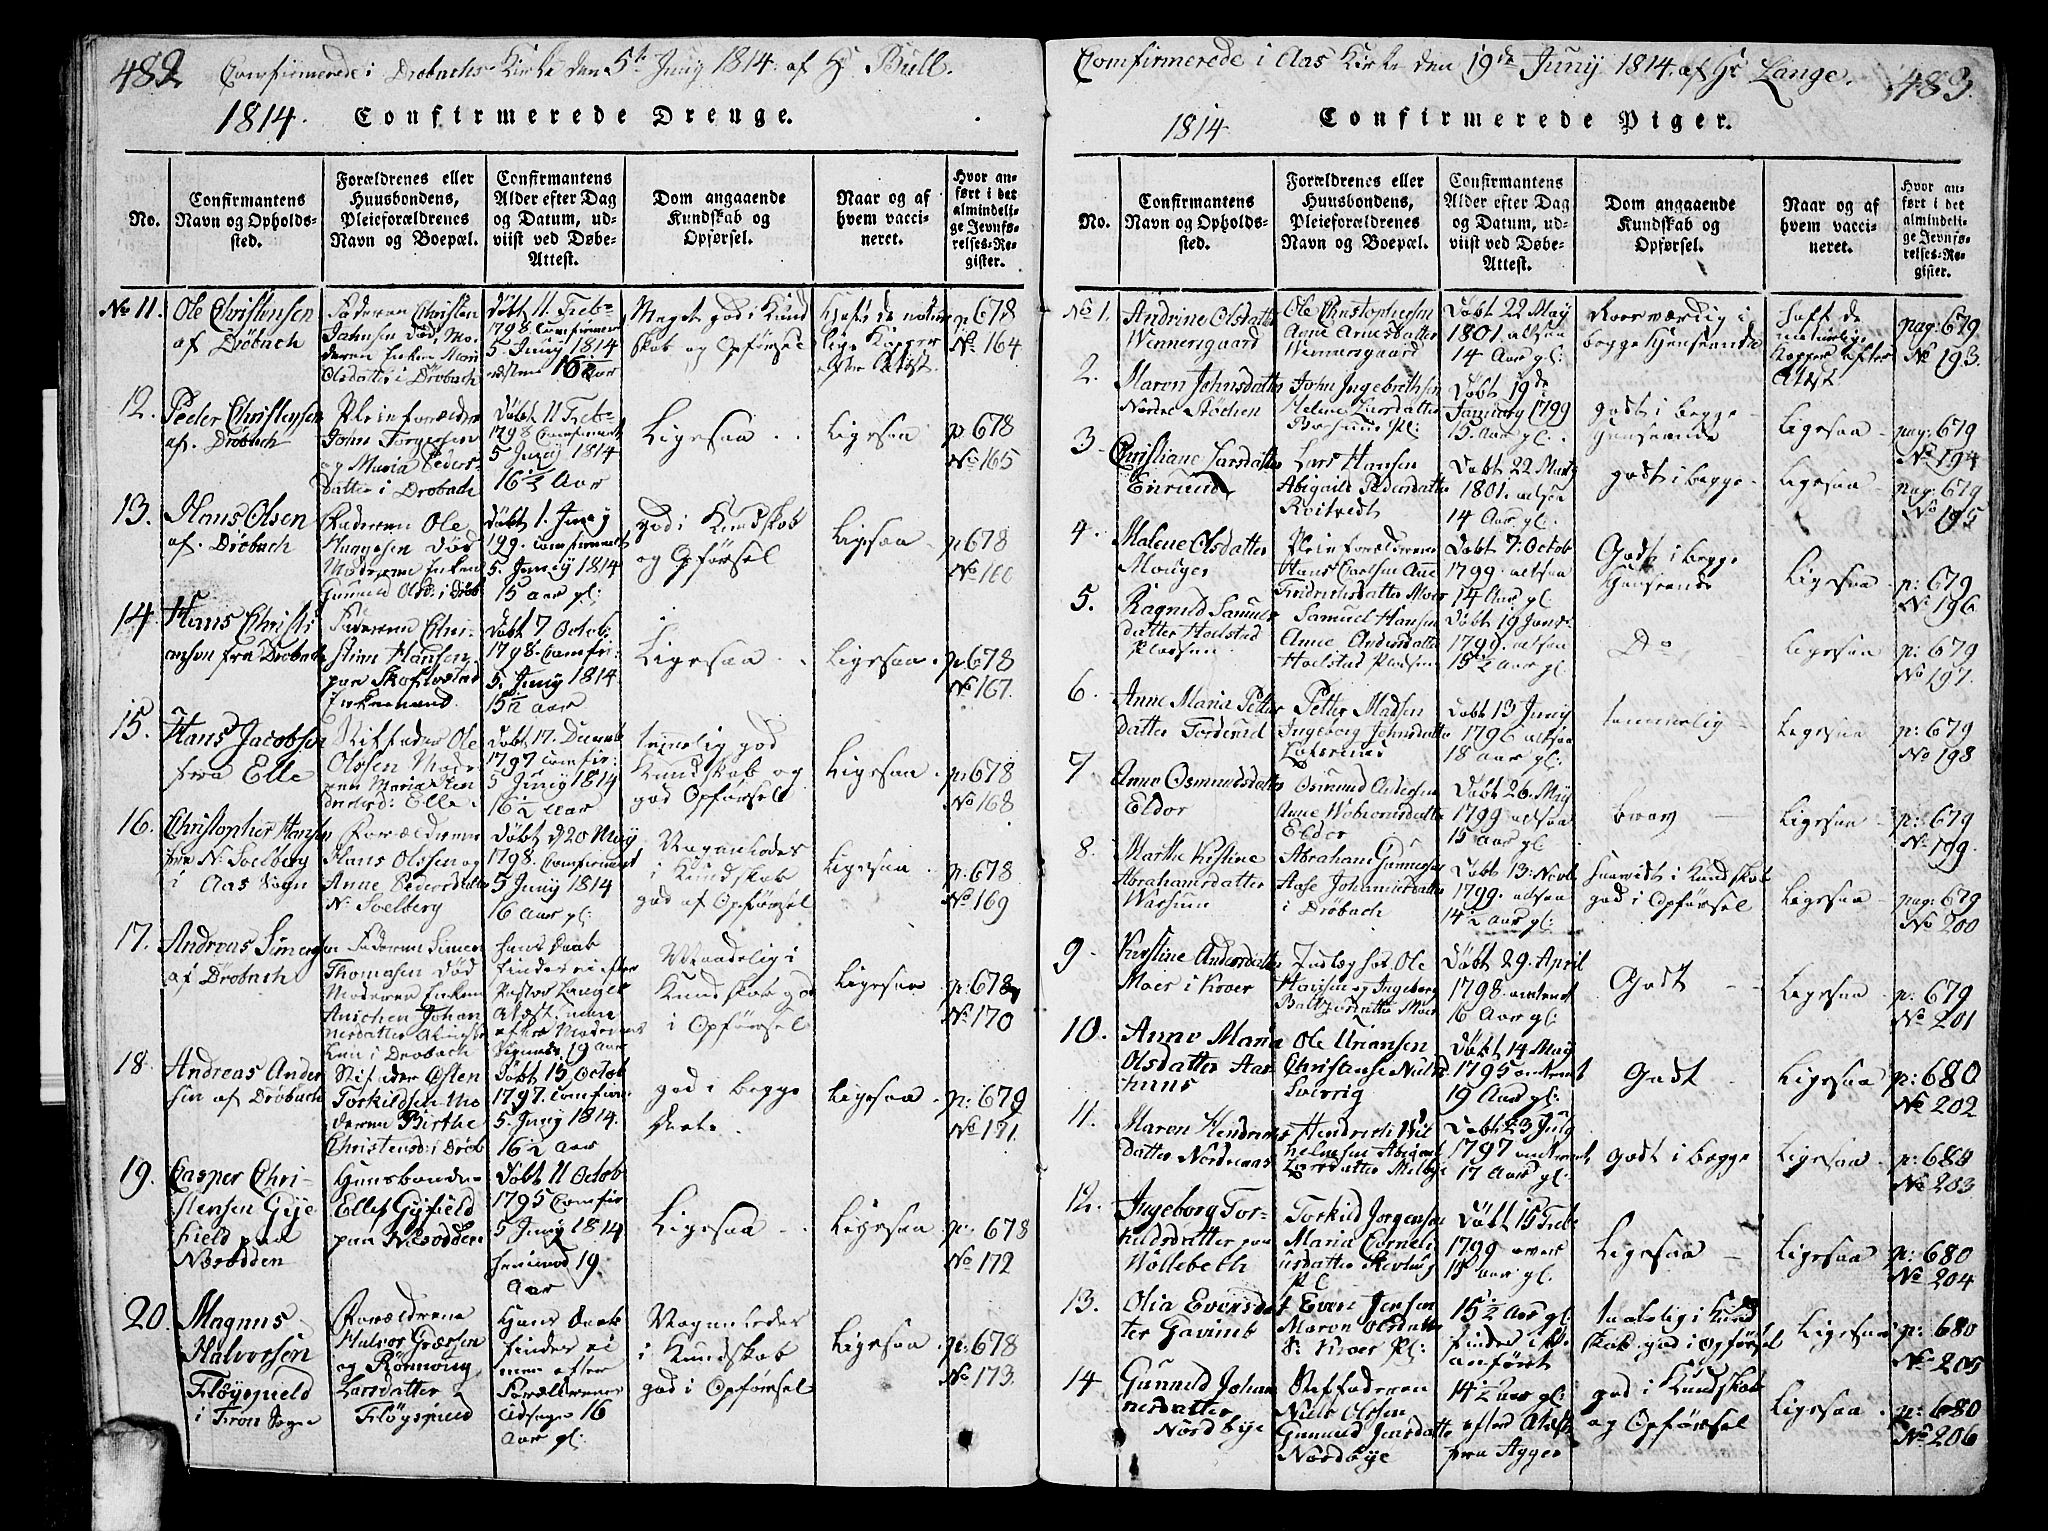 482
Comfirmerede i Drøbachs Kirke den 5te Junij 1814 af Hr Bull.
1814. Confirmerede Drenge.
No.
Confirmantens Navn og Opholdssted.
Forældrenes eller Huusbondens, Pleieforældrenes Navn og Boepæl.
Confirmantens Alder efter Dag og Datum, udviist ved Døbe-Attest.
Dom angaaende Kundskab og Opførsel.
Naar og af hvem vaccineret.
Hvor anført i det almindelige Jevnførelses-Register.
No 11.
Ole Christensen
af Drøbach
Faderen Christen
Jahnsen død, Mo-
deren Enken
Olsdatter i Drøbach
Døbt 11. Febr
1798 Comfirmeret
5 Junij 1814
16 1/2 Aar
Meget god i Kund
skab og Opførsel
lige Kopper
efter Attest.
p: 678
No 164
12.
Peder Christensen
af. Drøbach
Pleieforældre
John Torgersen
og Maria Peders-
datter i Drøbach
Døbt 11 Febr
1798 Comfirmeret
5 Junij 1814
16 1/2 Aar
Ligesaa
Ligesaa
p: 678
No 165
13.
Hans Olsen
af. Drøbach
Faderen Ole
død
Moderen Enken
Gunnild Olsd: i Drøb
Døbt 1. Junij
199. Comfirmeret
5. Junij 1814
15 Aar gl:
god i Kundskab
og Opførsel
Ligesaa
p: 678
No 166
14.
Hans Christi
ansen fra Drøbach
Faderen Chri-
stian Hansen
Døbt 7 Octob:
1798. Comfir:
5. Junij 1814
15 1/2 Aar
Ligesaa
Ligesaa.
p: 678
No 167.
15.
Hans Jacobsen
fra Elle
Stiffader Ole
Olssen Mode
ren Maria
Elle.
Døbt 17. Decemb
1797 Comfir:
5 Junij 1814
16 1/2 Aar
temmelig god
Kundskab og
god Opførsel
Ligesaa.
p: 678
No 168
16.
Christopher Hansen
fra N: Solberg
i Aas Sogn
Forældrene
Hans Olssen og
Anne Pedersdatter
N: Solberg
Døbt d 20 Maij
1798. Comfirmeret
5 Junij 1814
16 Aar gl:
i Kundskab
god af Opførsel
Ligesaa.
p: 678
No 169
17.
Andreas Simensen
af Drøbach
Faderen Simen
Thomasen død
Moderen Enken
Anichen Johan
nesdatter
i Drøbach
Hans Daab
findes ei efter
Pastor Langes
Attest, men
efter Moderens
19 Aar
Kundskab god
i Opførsel
Ligesaa
p: 678
No 170
18.
Andreas Ander
sen af Drøbach
Stifader Osten
Torkildsen Mo
deren Birthe
Christensd: i Drøb
Døbt 15 Octob
1797. Comfir:
5. Junij 1814.
16 1/2 Aar
god i begge
Dele.
Ligesaa.
p: 679
No 171.
19.
Casper Chri-
stensen Gije
field paa
Nesodden
Huusbonden
Ellef Gijfield
paa Nesodden
Døbt 11 Octob
1795 Comfir
5 Junij 1814
19
Aar
Ligesaa
Ligesaa
p: 678
No 172
20.
Magnus
Halvorsen
Fløyspield
i Fron Sogn
Forældrene
Halvor
og Rønnoug
Larsdatter
Fløyspield
Hans Daab
findes ei
men efter
Forældrenes
Udsagn 16
Aar gl:
i Kundskab
god i Opførsel
Ligesaa
p: 678
No 173.
Comfirmerede i Aas Kirke den 19de Junij 1814. af Hr Lange.
483.
1814
Confirmerede Piger.
No.
Confirmantens Navn og Opholdssted.
Forældrenes eller Huusbondens, Pleieforældrenes Navn og Boepæl.
Confirmantens Alder efter Dag og Datum, udviist ved Døbe-Attest.
Dom angaaende Kundskab og Opførsel.
Naar og af hvem vaccineret.
Hvor anført i det almindelige Jevnførelses-Register.
No 1.
Andrine Olsdatter
Winnersgaard
Ole Christophersen
Anne Arnesdatter
Winnersgaard
Døbt 22 Maij
1801. altsaa
14 Aar gl:
Roesværdig i
begge Henseende
haft de
naturlige
Kopper efter
Attest
pag: 679
No 193.
2.
Maren Johnsdatter
Nordre Støchen
John Ingebrethsen
Helene Larsdatter
Døbt 19de
Januarij 1799
15 Aar gl:
godt i begge
Henseende
Ligesaa
pag: 679
No 194
3
Christiane Larsdatter
Lars Hansen
Abigaild Pedersdatter
Døbt 22 Martij
1801. altsaa
14 Aar gl:
godt i begge
Ligesaa
pag: 679
No 195
4.
Malene Olsdatter
Pleieforældrene
Hans Carlsen Ane
Fredrichsdatter Moer
Døbt 7: Octob
1799. altsaa
14 Aar gl:
Godt i begge
Henseende
Ligesaa
p: 679
No 196
5.
Ragnild Samuels
datter Holstad
Pladsen
Samuel Hansen
Anne Andersdatter
Holstad Pladsen
1799. altsaa
15 1/2 Aar gl:
Do
Ligesaa
p: 679
No 197.
6.
Anne Maria Petter
datter
Petter Madsen
Ingeborg Johnsdatter
Døbt 13 Junij
1796 altsaa
18 Aar gl:
temmelig
Ligesaa
p: 679
No 198
7
Anne Osmundsdatter
Eldor
Osmund Andersen
Anne
Eldor
Døbt 26. Maij
1799 altsaa
15 Aar gl:
brav
Ligesaa
p: 679
No 199.
8.
Marthe Kirstine
Abrahamsdatter
Abraham Gundersen
Aase Johannesdatter
i Drøbach
Døbt 13: Novb
1799. altsaa
14 1/2 Aar gl:
saavidt i Kundskab
god i Opførsel
Ligesaa
pag: 679
No 200
9
Kirstine Andersdatter
Moer i Kroer
Ole
Hansen og Ingeborg
Moer
Døbt 29. April
1798. omtrent
16 Aar gl:
Godt
Ligesaa
p: 679
No 201
10.
Anne Maria
Olsdatter Aar
huus
Ole
Christense
Døbt 14 Maij
1795 omtrent
19 Aar gl:
Godt
Ligesaa
p: 680
No 202
11.
Maren Hendrichs
datter Nordraas
Hendrich Wil
helmsen Abigael
Larsdatter
Døbt 23 Julij
1797 omtrent
17 Aar gl:
godt i begge
Ligesaa
p: 680
No 203
12.
Ingeborg Tor-
kildsdatter paa
Wollebeth
Torkild Jørgensen
Maria Corneli
usdatter
Døbt 15 Feb:
1799
15 Aar gl.
Ligesaa
Ligesaa
p: 680
No 204
13.
Olia Eversdat
ter
Even Jensen
Maren Olsdatter
S: Kroer Pl:
15 1/2 Aar gl:
findes ikke
anført
taalelig i Kund
skab, god i Opførsel
Ligesaa
p: 680
No 205
14
Gunnild Johan
nesdatter
Nordbye
Stiffaderen
Niels Olssen
Gunnild Jensdatter
Nordbye
14 1/2 Aar gl:
efter Attest
fra Agger
god i Kundskab
og Opførsel
Ligesaa.
p: 680
No 206